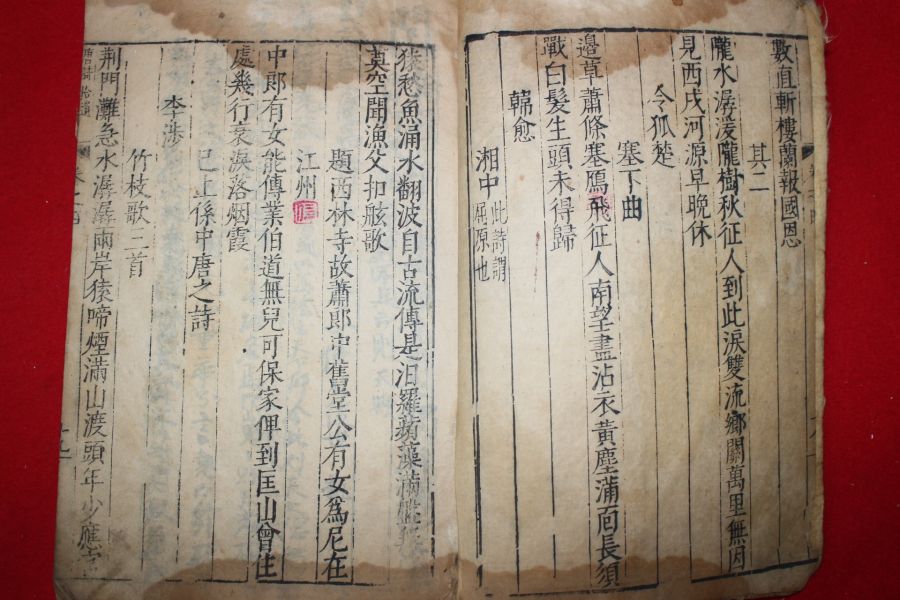 數直斬樓蘭報國恩
其二
隴水潺湲隴樹秋征人到此淚雙流鄉關萬里無因
見西戍河源早晚休
令狐楚
塞下曲
邊草蕭條塞鴈飛征人南望盡沾衣黃塵蒲面長須
戰白髮生頭未得歸
韓愈
湘中 此詩謂屈原也
猿愁魚涌水翻波自古流傳是汨羅蘋藻滿盤無
奠空聞漁父扣舷歌
題西林寺故蕭郎中舊堂公有女為尼在
江州
中郎有女能傳業伯道無兒可保家俾到匡山曾住
處幾行衰淚落烟霞
已上係中唐之詩
李涉
竹枝歌三首
荆門灘急水潺潺兩岸猿啼煙滿山渡頭年少應官